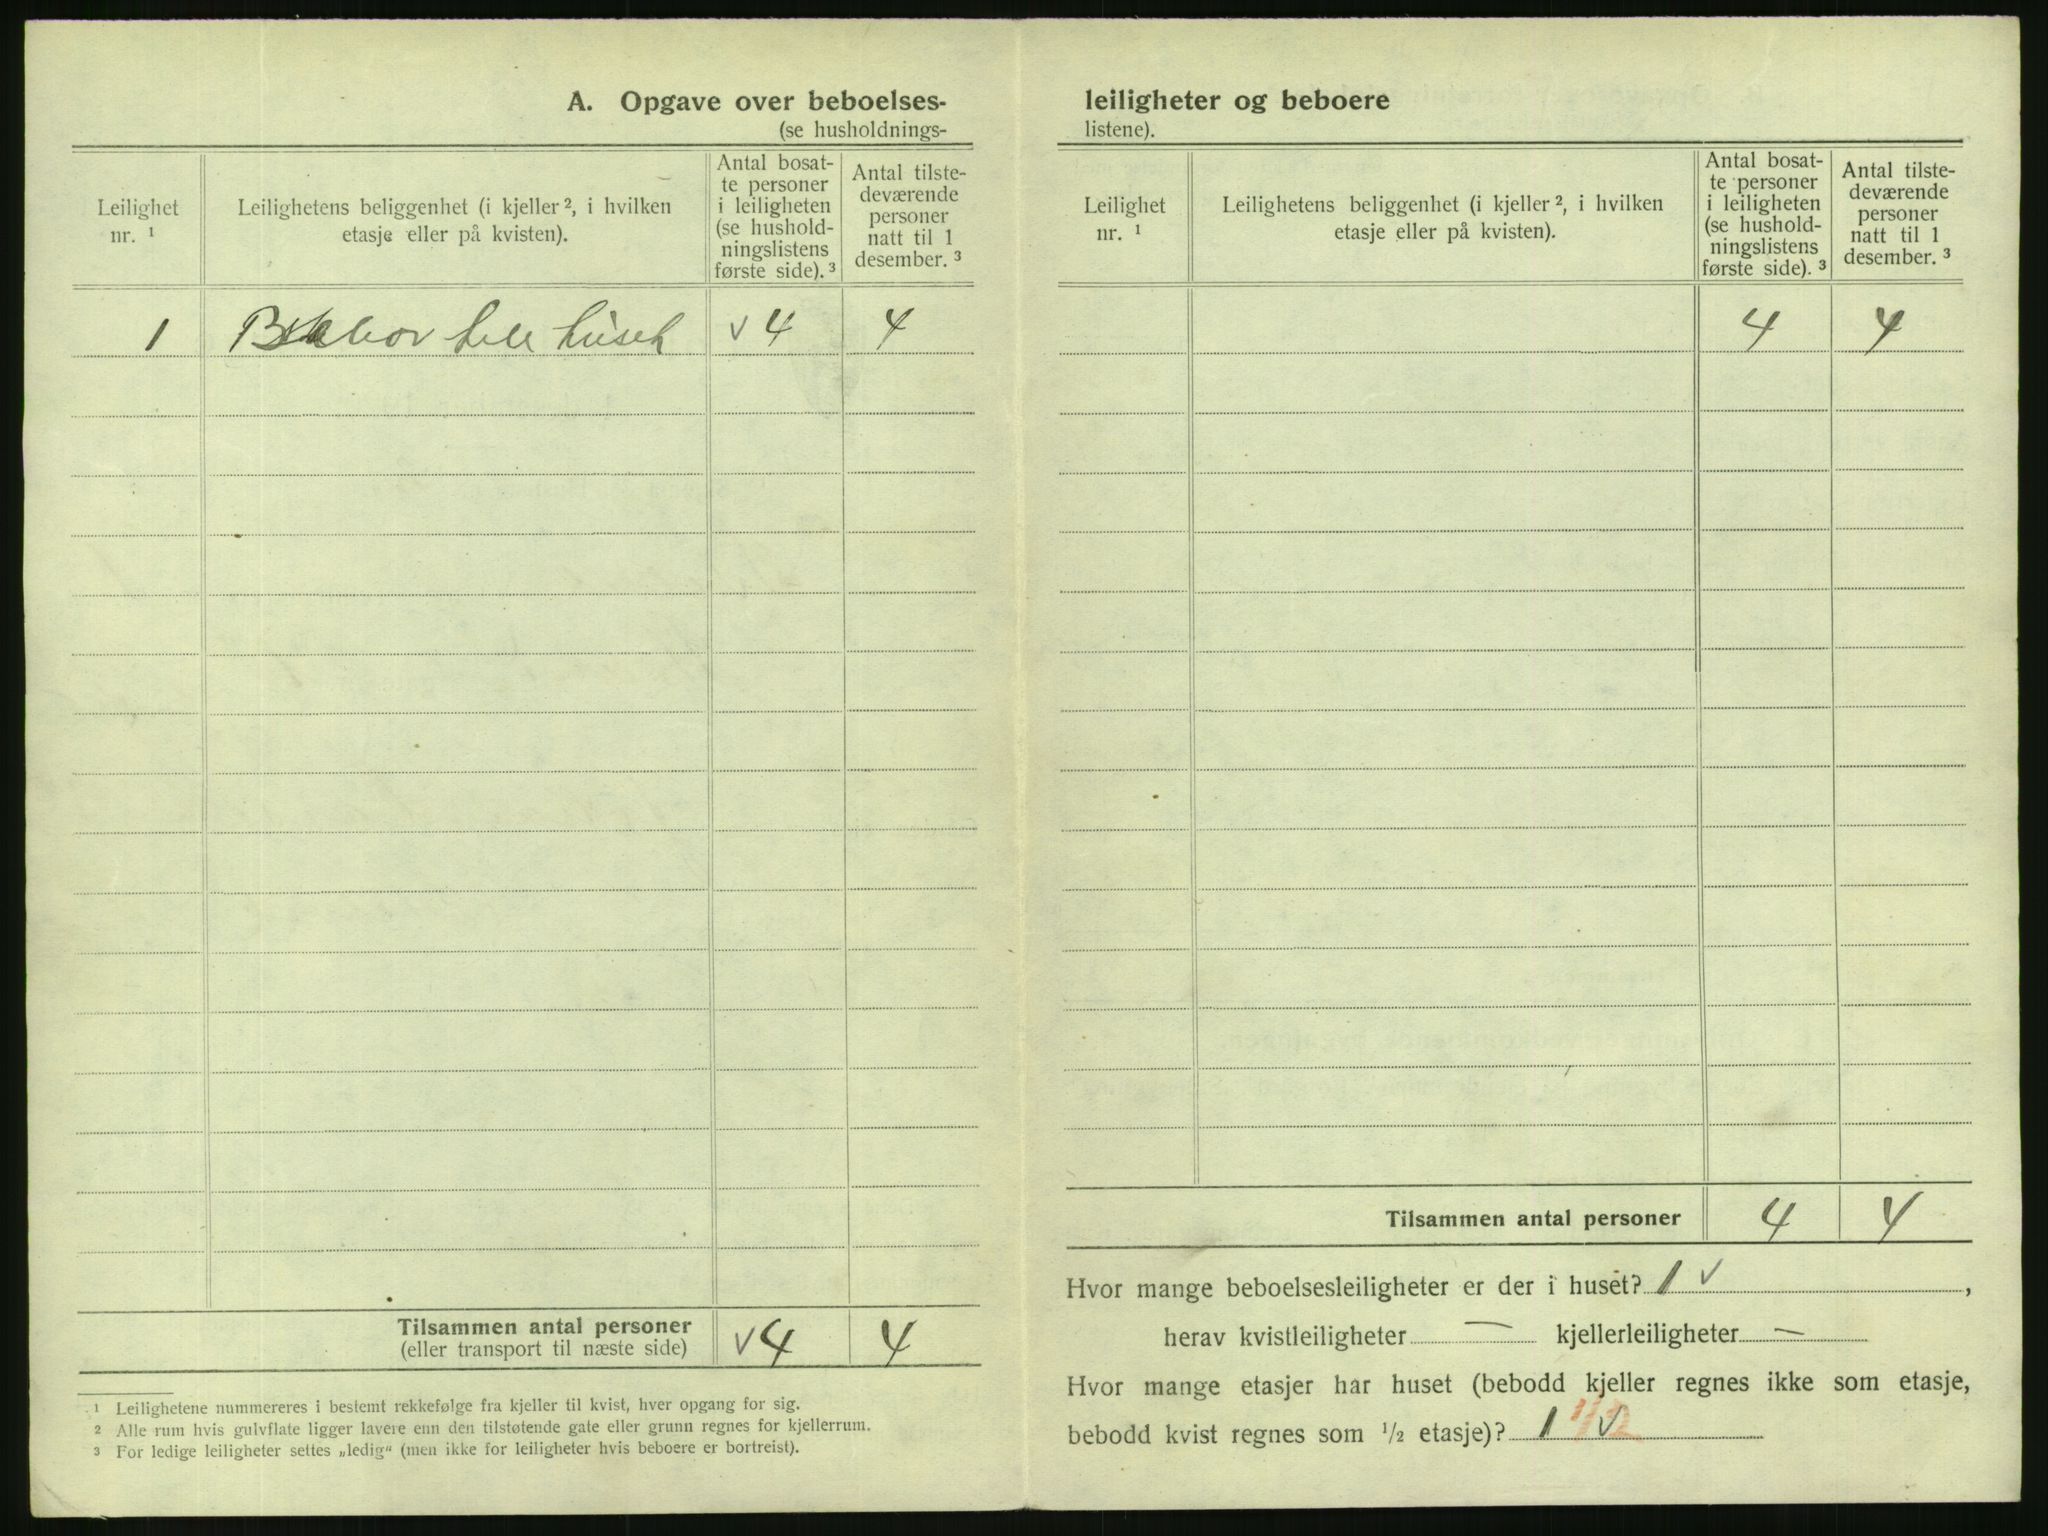 A. Opgave over beboelses-
(se husholdnings-
Leilighet
nr. ¹
Leilighetens beliggenhet (i kjeller ², i hvilken
etasje eller på kvisten).
Antal bosat-
te personer
i leiligheten
(se hushold-
ningslistens
første side). ³
Antal tilste-
deværende
personer
natt til 1
desember. ³
1 bor hele huset √ 4 4
Tilsammen antal personer √ 4 4
(eller transport til næste side)
¹ Leilighetene nummereres i bestemt rekkefølge fra kjeller til kvist, hver opgang for sig.
² Alle rum hvis gulvflate ligger lavere enn den tilstøtende gate eller grunn regnes for kjellerrum.
³ For ledige leiligheter settes „ledig“ (men ikke for leiligheter hvis beboere er bortreist).
leiligheter og beboere
listene).
Leilighet
nr. ¹
Leilighetens beliggenhet (i kjeller ², i hvilken
etasje eller på kvisten).
Antal bosat-
te personer
i leiligheten
(se hushold-
ningslistens
første side). ³
Antal tilste-
deværende
personer
natt til 1
desember. ³
4 4
Tilsammen antal personer 4 4
Hvor mange beboelsesleiligheter er der i huset? 1 √ ,
herav kvistleiligheter — kjellerleiligheter —
Hvor mange etasjer har huset (bebodd kjeller regnes ikke som etasje,
bebodd kvist regnes som ½ etasje)? 1 1/2 √